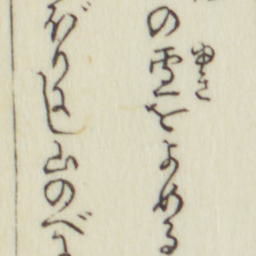 の雪をよめる
ゆき
ぼりにし山のべ